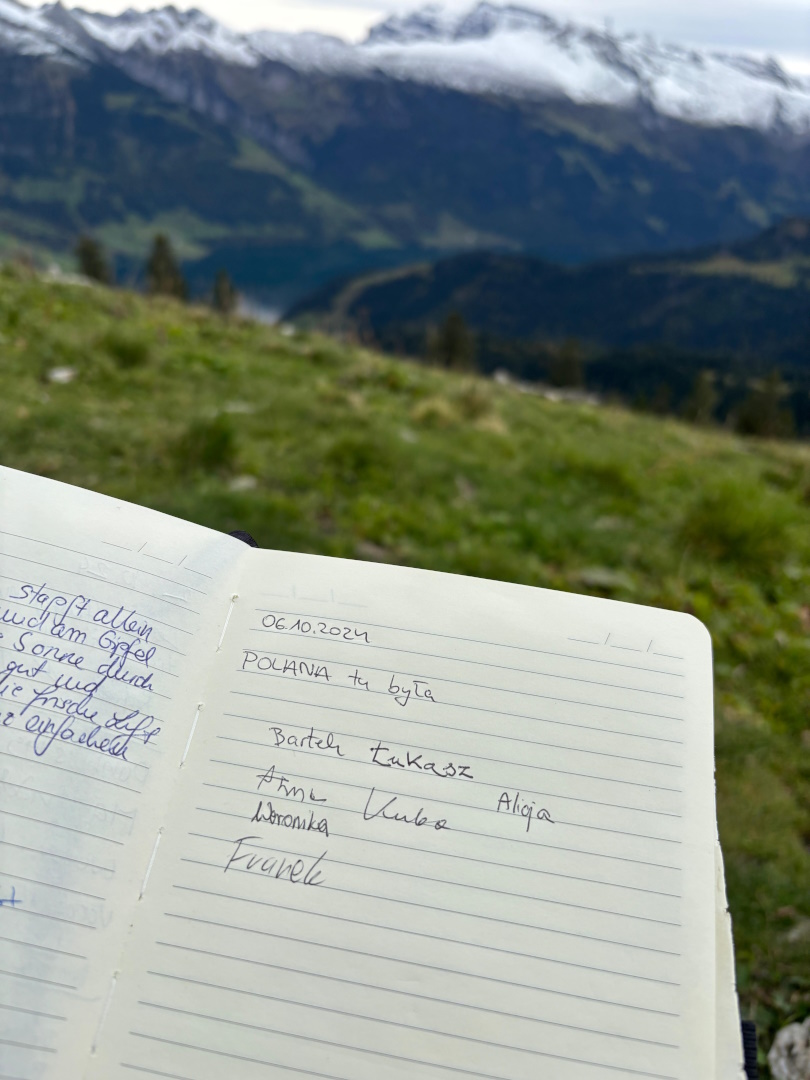 stapft allein
und am Gipfel
Sonne durch
gut und
die frische Luft
einfachen
06.10.2024
POLANA tu była
Bartek Łukasz
Anna Kuba Alicja
Weronika
Franek